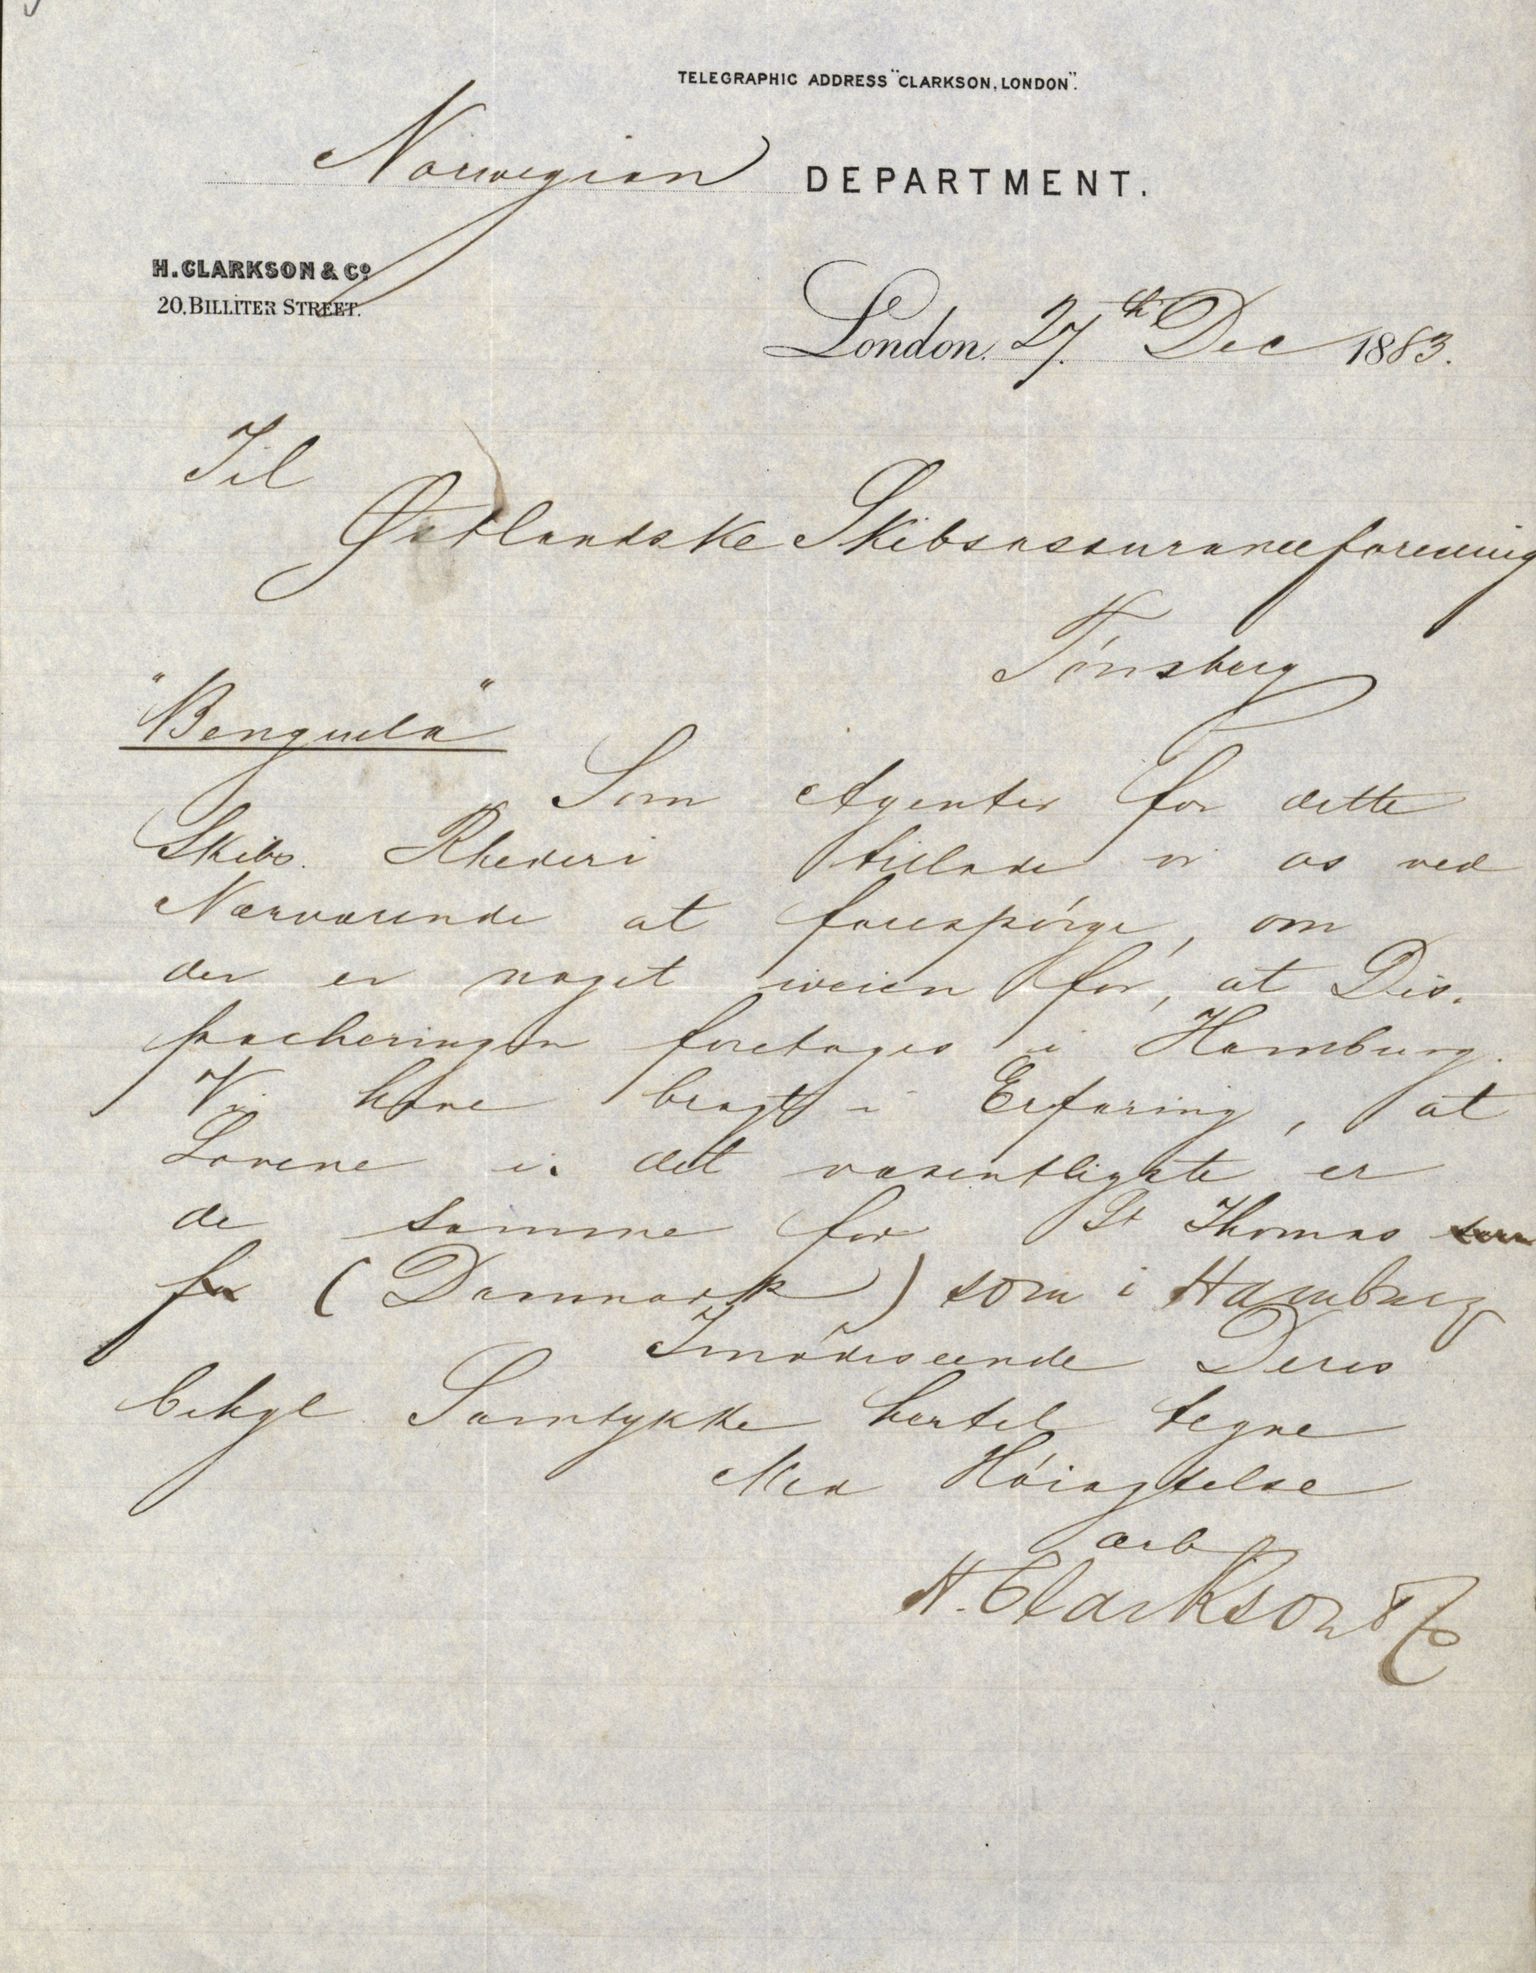 TELEGRAPHIC ADDRESS "CLARKSON, LONDON".
Norwegian DEPARTMENT.
H. CLARKSON & Co
20, BILLITER STREET.
London. 27th Dec 1883.
Til
Østlandske Skibsassuranceforening
Tønsberg
"Benguela"
Som Agenter for dette
Skibs. Rhederi tillade vi os ved
Nærværende at forespørge, om
der er noget iveien for, at Dis-
pacheringen foretages i Hamburg.
Vi have bragt i Erfaring, at
Lovene i det væsentligste er
de samme for St Thomas som
for (Danmark) som i Hamburg
Imødeseende Deres
behgl Samtykke hertil tegne
Med Høiagtelse
ærb
H. Clarkson & Co